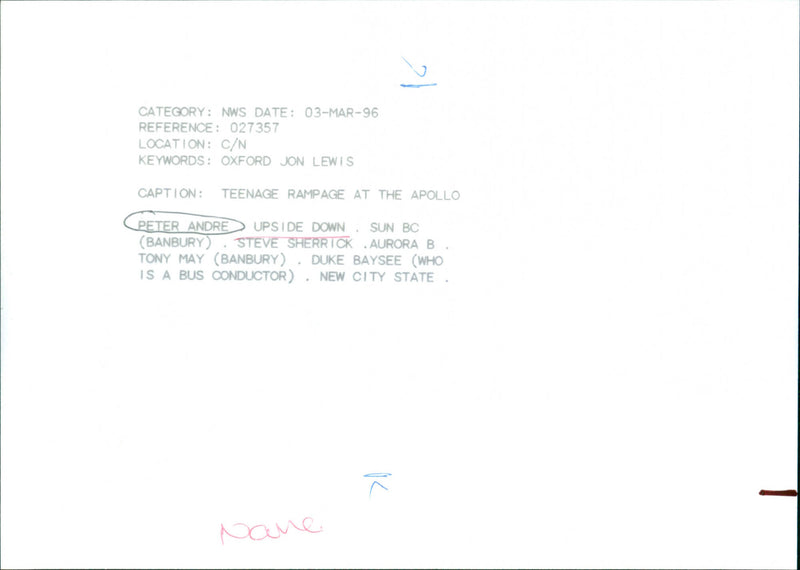 CATEGORY: NWS DATE: 03-MAR-96
REFERENCE: 027357
LOCATION: C/N
KEYWORDS: OXFORD JON LEWIS
CAPTION: TEENAGE RAMPAGE AT THE APOLLO
PETER ANDRE UPSIDE DOWN . SUN BC
(BANBURY) . STEVE SHERRICK .AURORA B .
TONY MAY (BANBURY) . DUKE BAYSEE (WHO
IS A BUS CONDUCTOR) . NEW CITY STATE .